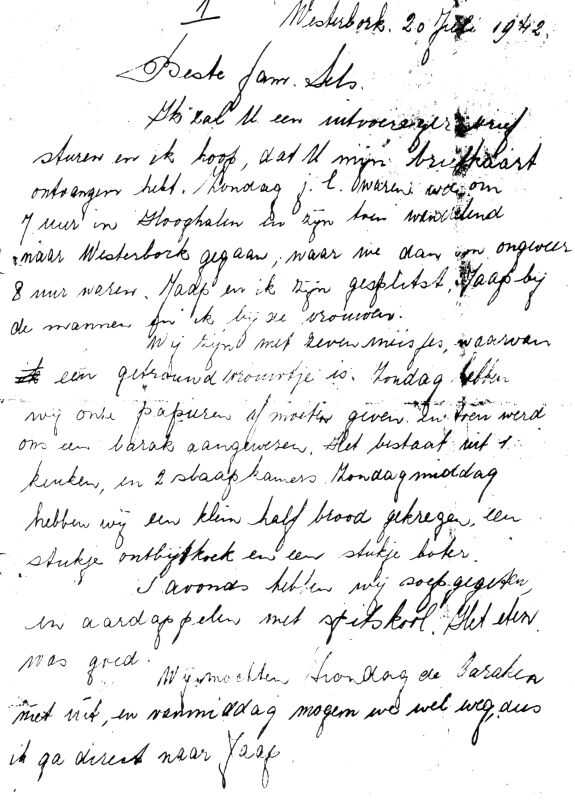 1
Westerbork. 20 Juli 1942.
Beste fam. Sels.
Ik zal U een uitvoerige brief
sturen en ik hoop, dat U mijn briefkaart
ontvangen hebt. Zondag j.l. waren we om
7 uur in Hooghalen en zijn toen wandelend
naar Westerbork gegaan, waar we dan om ongeveer
8 uur waren. Jaap en ik zijn gesplitst. Jaap bij
de mannen en ik bij de vrouwen.
Wij zijn met zeven meisjes, waarvan
een getrouwd vrouwtje is. Zondag hebben
wij onze papieren af moeten geven. En toen werd
ons een barak aangewezen. Het bestaat uit 1
keuken, en 2 slaapkamers. Zondagmiddag
hebben wij een klein half brood gekregen, een
stukje ontbijtkoek en een stukje boter.
S avonds hebben wij soep gegeten,
en aardappelen met spitskool. Het eten
was goed.
Wij mochten Zondag de Baraken
niet uit, en vanmiddag mogen we wel weg, dus
ik ga direct naar Jaap